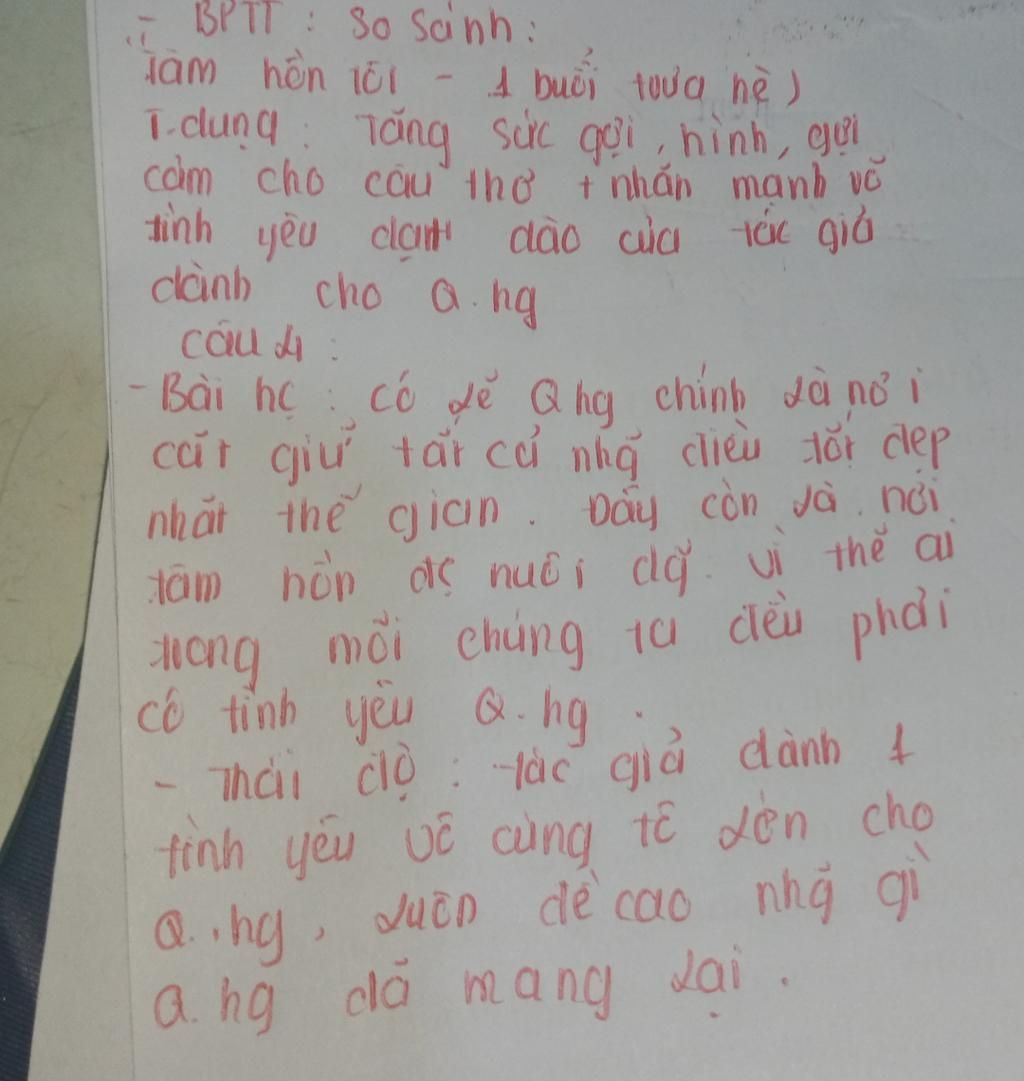 - BPTT : So sánh :
Tâm hồn tôi - 1 buổi trưa hè )
T.dụng : Tăng sức gợi, hình, gợi
cảm cho câu thơ + nhấn mạnh về
tình yêu dạt dào của tác giả
dành cho Q.hg
câu 4 :
- Bài hc : có lẽ Q hg chính là nơi
cất giữ tất cả nhg̃ điều tốt đẹp
nhất thế gian. Đấy còn là nơi
tâm hồn đc nuôi dg̃. vì thế ai
trong mỗi chúng ta đều phải
có tình yêu Q.hg.
- Thái độ : tác giả dành 1
tình yêu vô cùng to lớn cho
Q.hg, luôn đề cao nhg̃ gì
Q.hg đã mang lại.